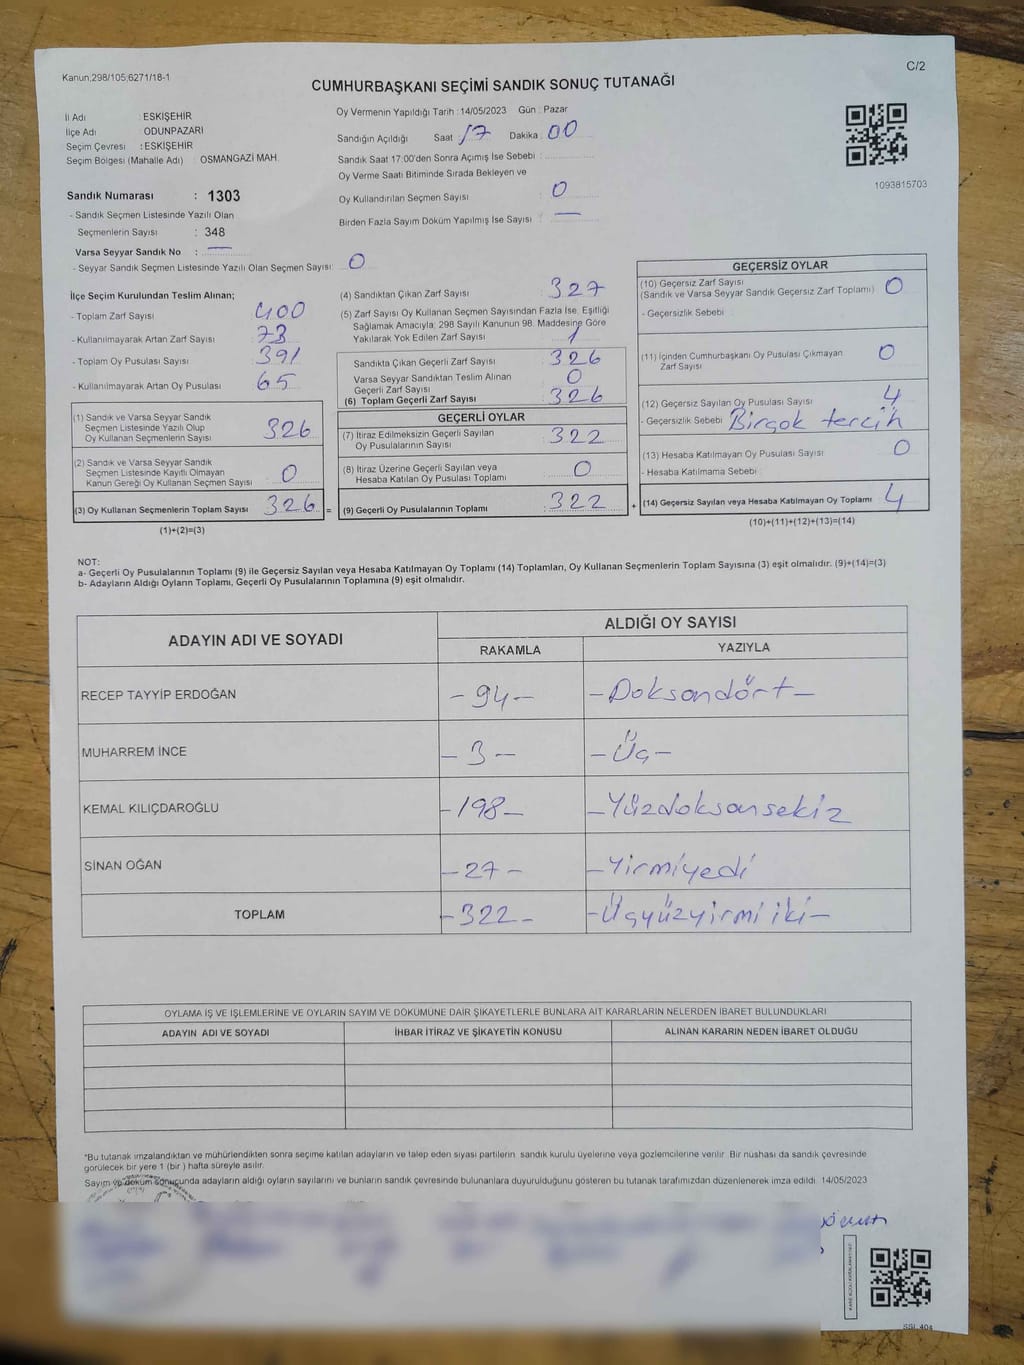 Kanun;298/105;6271/18-1
C/2
CUMHURBAŞKANI SEÇİMİ SANDIK SONUÇ TUTANAĞI
İl Adı : ESKİŞEHİR
İlçe Adı : ODUNPAZARI
Seçim Çevresi : ESKİŞEHİR
Seçim Bölgesi (Mahalle Adı) : OSMANGAZİ MAH.
Sandık Numarası : 1303
- Sandık Seçmen Listesinde Yazılı Olan
Seçmenlerin Sayısı : 348
Varsa Seyyar Sandık No : —
- Seyyar Sandık Seçmen Listesinde Yazılı Olan Seçmen Sayısı: 0
Oy Vermenin Yapıldığı Tarih : 14/05/2023 Gün : Pazar
Sandığın Açıldığı Saat : 17 Dakika : 00
Sandık Saat 17:00'den Sonra Açımış İse Sebebi :
Oy Verme Saati Bitiminde Sırada Bekleyen ve
Oy Kullandırılan Seçmen Sayısı : 0
Birden Fazla Sayım Döküm Yapılmış İse Sayısı : —
1093815703
İlçe Seçim Kurulundan Teslim Alınan;
- Toplam Zarf Sayısı 400
- Kullanılmayarak Artan Zarf Sayısı 73
- Toplam Oy Pusulası Sayısı 391
- Kullanılmayarak Artan Oy Pusulası 65
(1) Sandık ve Varsa Seyyar Sandık
Seçmen Listesinde Yazılı Olup
Oy Kullanan Seçmenlerin Sayısı 326
(2) Sandık ve Varsa Seyyar Sandık
Seçmen Listesinde Kayıtlı Olmayan
Kanun Gereği Oy Kullanan Seçmen Sayısı 0
(3) Oy Kullanan Seçmenlerin Toplam Sayısı 326 =
(1)+(2)=(3)
(4) Sandıktan Çıkan Zarf Sayısı 327
(5) Zarf Sayısı Oy Kullanan Seçmen Sayısından Fazla İse, Eşitliği
Sağlamak Amacıyla; 298 Sayılı Kanunun 98. Maddesine Göre
Yakılarak Yok Edilen Zarf Sayısı 1
Sandıkta Çıkan Geçerli Zarf Sayısı 326
Varsa Seyyar Sandıktan Teslim Alınan
Geçerli Zarf Sayısı 0
(6) Toplam Geçerli Zarf Sayısı 326
GEÇERLİ OYLAR
(7) İtiraz Edilmeksizin Geçerli Sayılan
Oy Pusulalarının Sayısı 322
(8) İtiraz Üzerine Geçerli Sayılan veya
Hesaba Katılan Oy Pusulası Toplamı 0
(9) Geçerli Oy Pusulalarının Toplamı 322 +
GEÇERSİZ OYLAR
(10) Geçersiz Zarf Sayısı
(Sandık ve Varsa Seyyar Sandık Geçersiz Zarf Toplamı) 0
- Geçersizlik Sebebi
(11) İçinden Cumhurbaşkanı Oy Pusulası Çıkmayan
Zarf Sayısı 0
(12) Geçersiz Sayılan Oy Pusulası Sayısı 4
- Geçersizlik Sebebi Birçok tercih
(13) Hesaba Katılmayan Oy Pusulası Sayısı 0
- Hesaba Katılmama Sebebi
(14) Geçersiz Sayılan veya Hesaba Katılmayan Oy Toplamı 4
(10)+(11)+(12)+(13)=(14)
NOT:
a- Geçerli Oy Pusulalarının Toplamı (9) ile Geçersiz Sayılan veya Hesaba Katılmayan Oy Toplamı (14) Toplamları, Oy Kullanan Seçmenlerin Toplam Sayısına (3) eşit olmalıdır. (9)+(14)=(3)
b- Adayların Aldığı Oyların Toplamı, Geçerli Oy Pusulalarının Toplamına (9) eşit olmalıdır.
ADAYIN ADI VE SOYADI
ALDIĞI OY SAYISI
RAKAMLA YAZIYLA
RECEP TAYYİP ERDOĞAN -94- -Doksandört-
MUHARREM İNCE -3- -Üç-
KEMAL KILIÇDAROĞLU -198- -Yüzdoksansekiz
SİNAN OĞAN -27- -Yirmiyedi
TOPLAM -322- -Üçyüzyirmi iki-
OYLAMA İŞ VE İŞLEMLERİNE VE OYLARIN SAYIM VE DÖKÜMÜNE DAİR ŞİKAYETLERLE BUNLARA AİT KARARLARIN NELERDEN İBARET BULUNDUKLARI
ADAYIN ADI VE SOYADI İHBAR İTİRAZ VE ŞİKAYETİN KONUSU ALINAN KARARIN NEDEN İBARET OLDUĞU
*Bu tutanak imzalandıktan ve mühürlendikten sonra seçime katılan adayların ve talep eden siyasi partilerin sandık kurulu üyelerine veya gözlemcilerine verilir. Bir nüshası da sandık çevresinde
görülecek bir yere 1 (bir) hafta süreyle asılır.
Sayım ve döküm sonucunda adayların aldığı oyların sayılarını ve bunların sandık çevresinde bulunanlara duyurulduğunu gösteren bu tutanak tarafımızdan düzenlenerek imza edildi. 14/05/2023
SSI_404